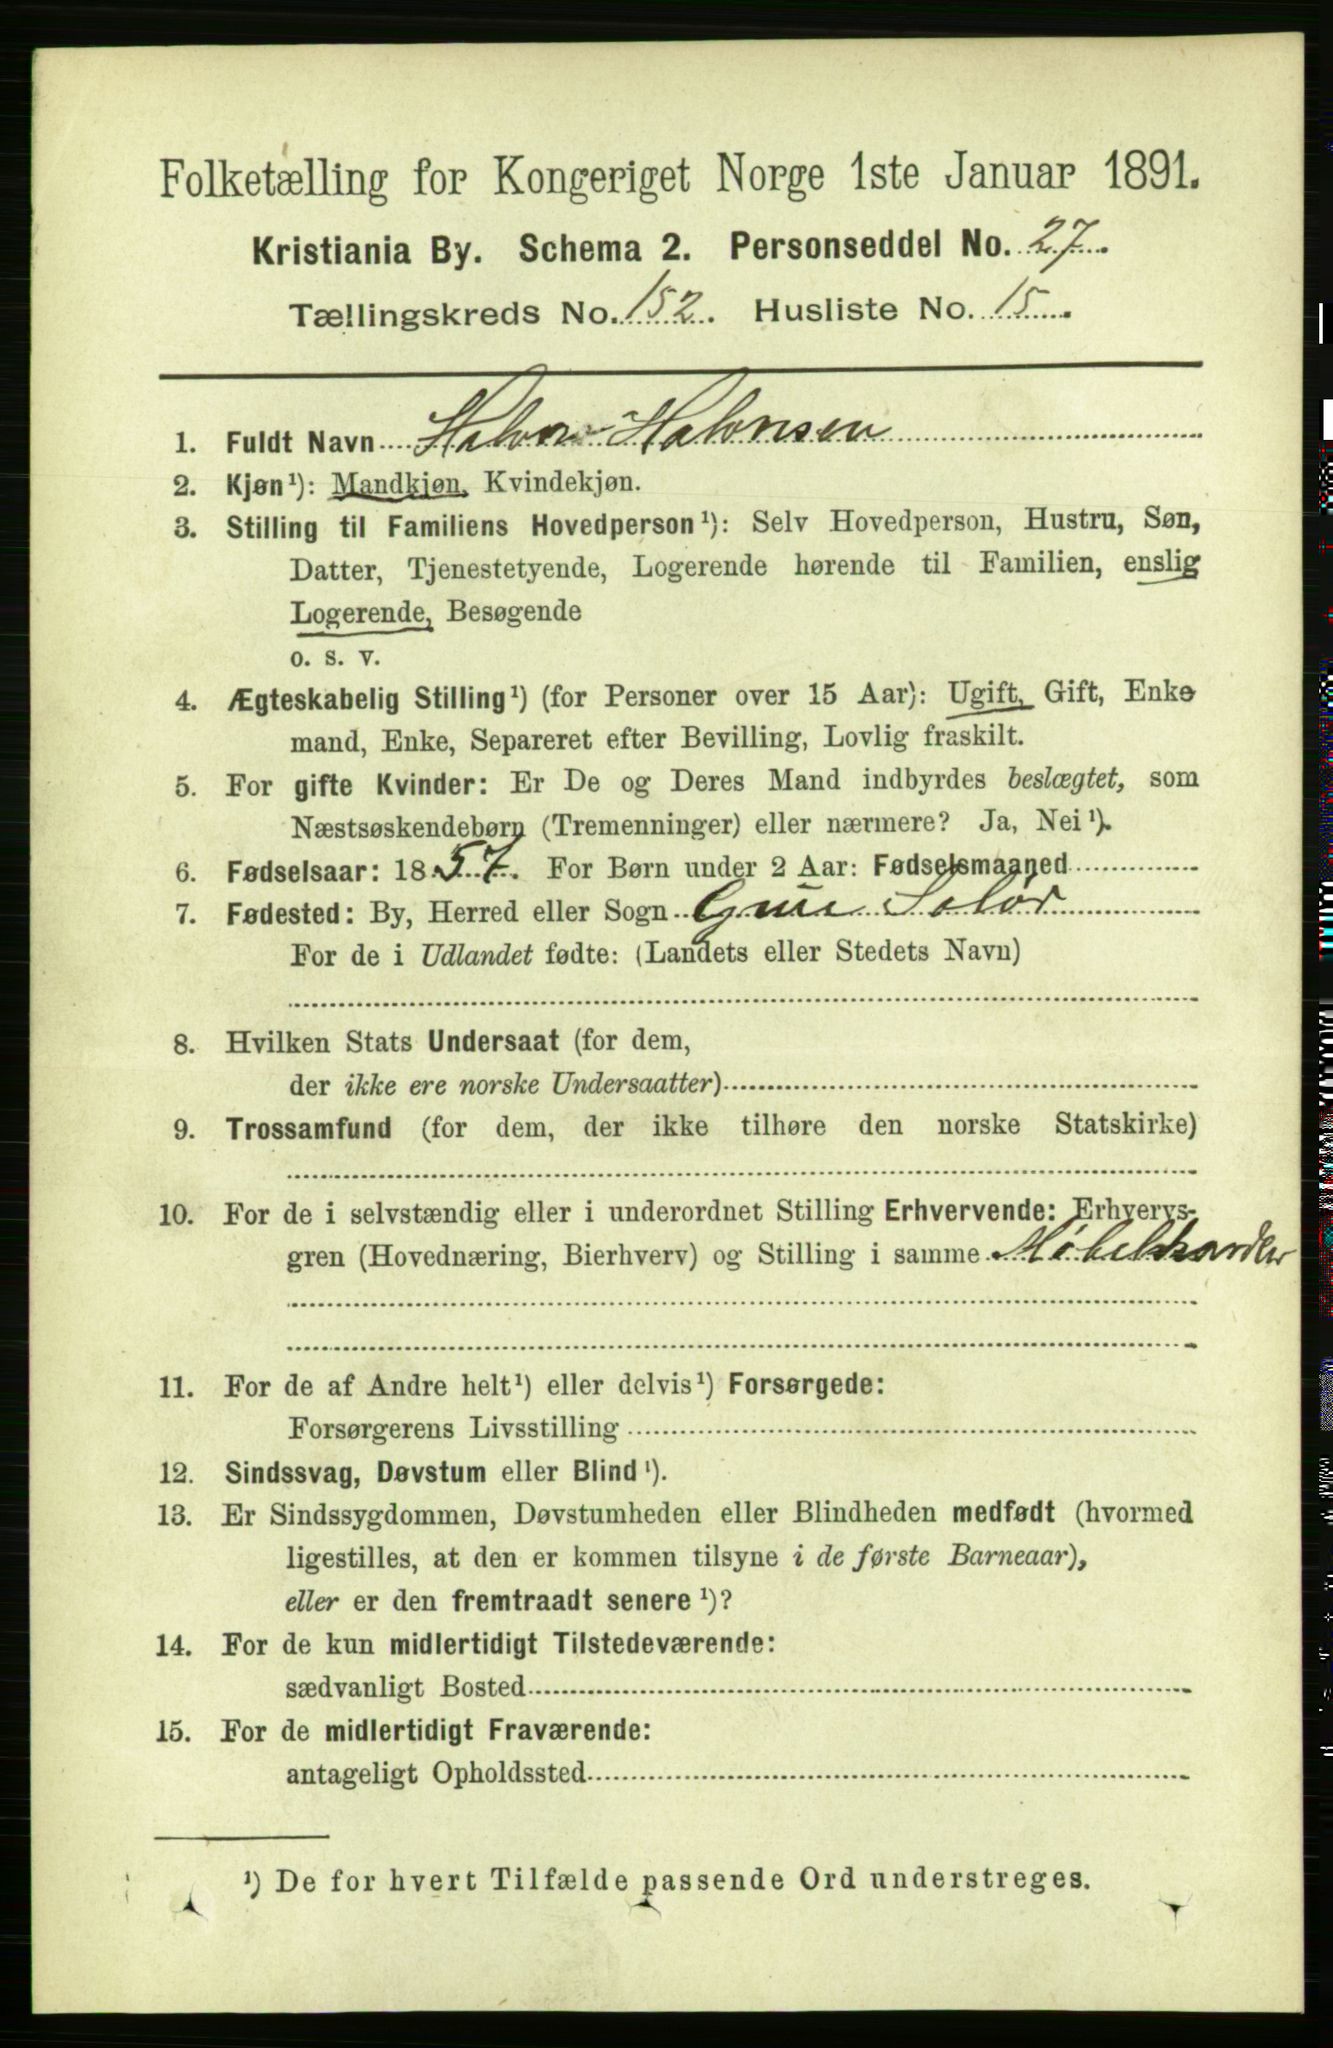 Folketælling for Kongeriget Norge 1ste Januar 1891.
Kristiania By. Schema 2. Personseddel No. 27.
Tællingskreds No. 152. Husliste No. 15.
1. Fuldt Navn Halvor Halvorsen
2. Kjøn¹): Mandkjøn, Kvindekjøn.
3. Stilling til Familiens Hovedperson¹): Selv Hovedperson, Hustru, Søn,
Datter, Tjenestetyende, Logerende hørende til Familien, enslig
Logerende, Besøgende
o. s. v.
4. Ægteskabelig Stilling¹) (for Personer over 15 Aar): Ugift, Gift, Enke
mand, Enke, Separeret efter Bevilling, Lovlig fraskilt.
5. For gifte Kvinder: Er De og Deres Mand indbyrdes beslægtet, som
Næstsøskendebørn (Tremenninger) eller nærmere? Ja, Nei¹).
6. Fødselsaar: 1857. For Børn under 2 Aar: Fødselsmaaned
7. Fødested: By, Herred eller Sogn Grue Solør
For de i Udlandet fødte: (Landets eller Stedets Navn)
8. Hvilken Stats Undersaat (for dem,
der ikke ere norske Undersaatter)
9. Trossamfund (for dem, der ikke tilhøre den norske Statskirke)
10. For de i selvstændig eller i underordnet Stilling Erhvervende: Erhvervs-
gren (Hovednæring, Bierhverv) og Stilling i samme Møbelhandler
11. For de af Andre helt¹) eller delvis¹) Forsørgede:
Forsørgerens Livsstilling
12. Sindssvag, Døvstum eller Blind¹).
13. Er Sindssygdommen, Døvstumheden eller Blindheden medfødt (hvormed
ligestilles, at den er kommen tilsyne i de første Barneaar),
eller er den fremtraadt senere¹)?
14. For de kun midlertidigt Tilstedeværende:
sædvanligt Bosted
15. For de midlertidigt Fraværende:
antageligt Opholdssted
¹) De for hvert Tilfælde passende Ord understreges.